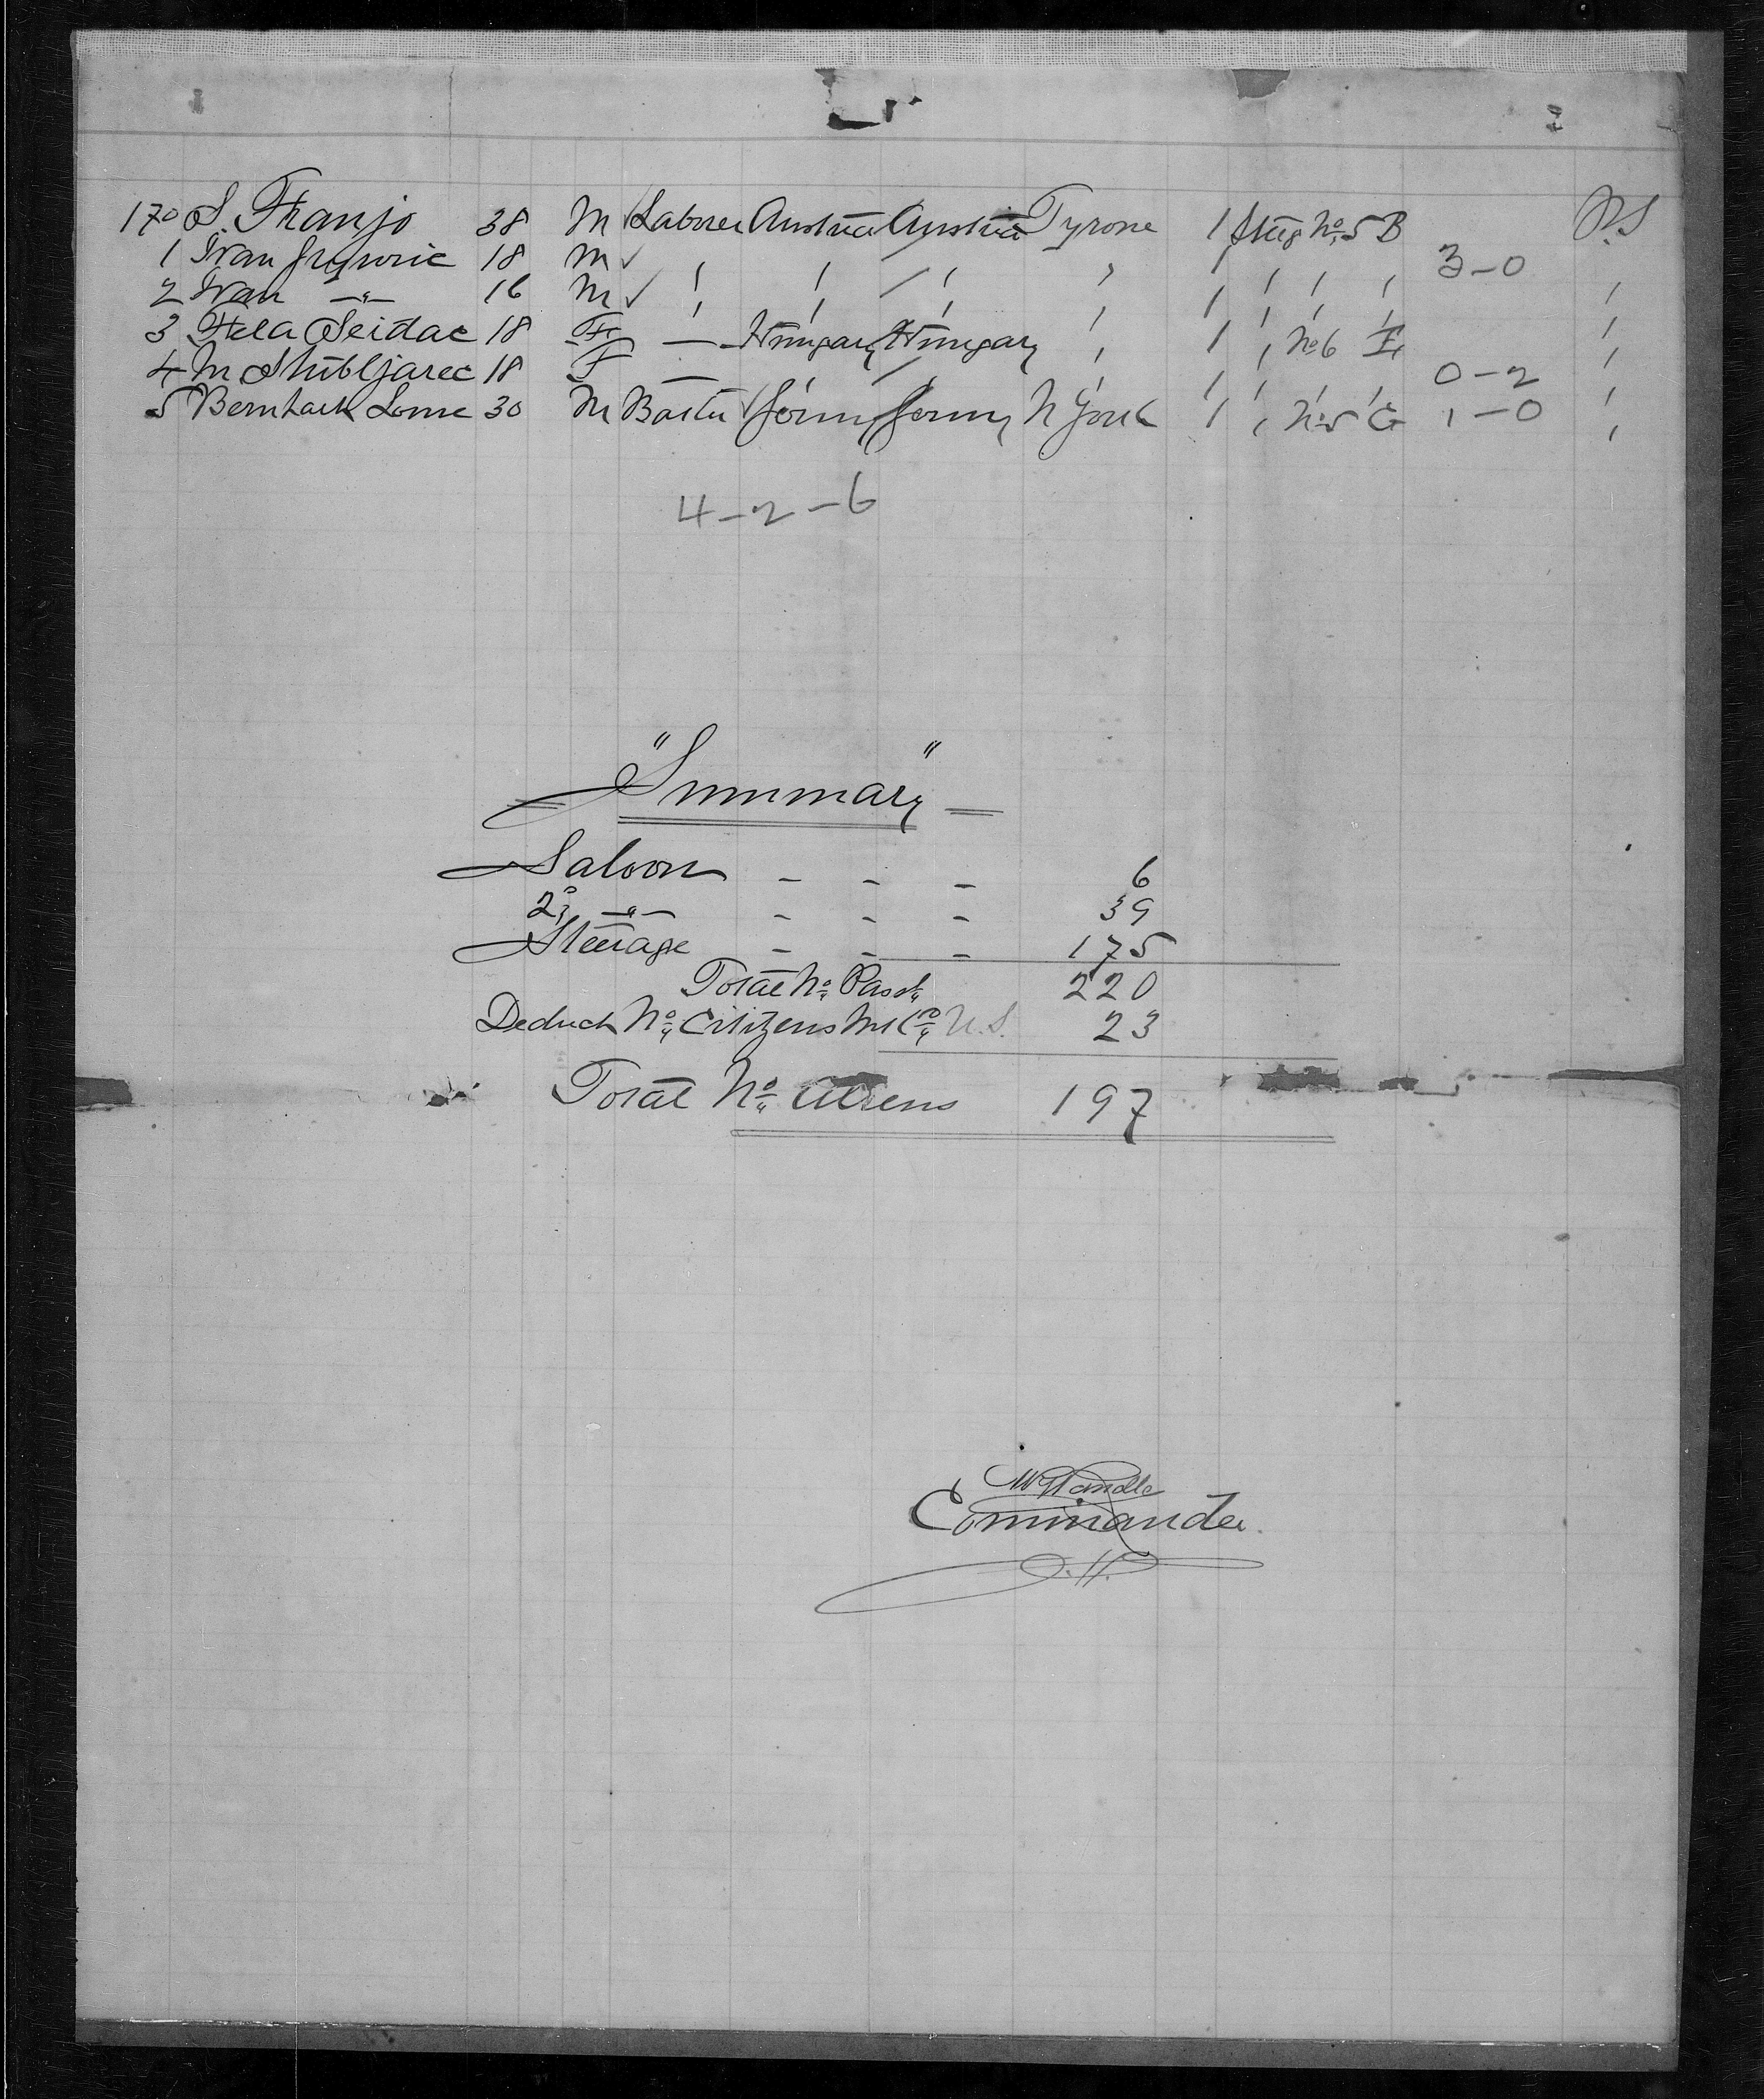 170 S. Franjo 38 M ✓ Laborer Austria Austria Tyrone 1 Steig No. 5 B P.S
1 Ivan 18 M ✓ " " " " 1 " " " 3-0 "
2 Ivan —"— 16 M ✓ " " " " 1 " " " "
3 Fela Seidac 18 F — Hungary Hungary " 1 " No 6 "
4 M Stübljarec 18 F — " " " 1 " " " 0-2 "
5 Bernhard 30 M Germy Germy N York 1 " No 5 G 1-0 "
4-2-6
"Summary"
Saloon - - - 6
2d, —"— - - - 39
Steerage - - - 175
Total No. Pass. 220
Deduct No. Citizens U.S. 23
Total No. Aliens 197
Commander